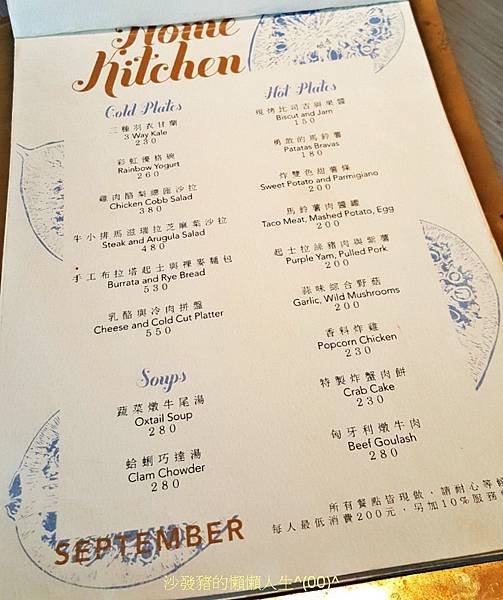 Home
Kitchen
Cold Plates
三種羽衣甘蘭
3 Way Kale
230
彩虹優格碗
Rainbow Yogurt
260
雞肉酪梨總匯沙拉
Chicken Cobb Salad
380
牛小排馬滋瑞拉芝麻葉沙拉
Steak and Arugula Salad
480
手工布拉塔起士與裸麥麵包
Burrata and Rye Bread
530
乳酪與冷肉拼盤
Cheese and Cold Cut Platter
550
Soups
蔬菜燉牛尾湯
Oxtail Soup
280
蛤蜊巧達湯
Clam Chowder
280
Hot Plates
現烤比司吉與果醬
Biscut and Jam
150
勇敢的馬鈴薯
Patatas Bravas
180
炸雙色甜薯條
Sweet Potato and Parmigiano
200
馬鈴薯肉醬罐
Taco Meat, Mashed Potato, Egg
200
起士拉絲豬肉與紫薯
Purple Yam, Pulled Pork
200
蒜味綜合野菇
Garlic, Wild Mushrooms
200
香料炸雞
Popcorn Chicken
230
特製炸蟹肉餅
Crab Cake
230
匈牙利燉牛肉
Beef Goulash
280
所有餐點皆現做，請耐心等候
每人最低消費200元，另加10%服務
SEPTEMBER
沙發豬的懶懶人生^(00)^